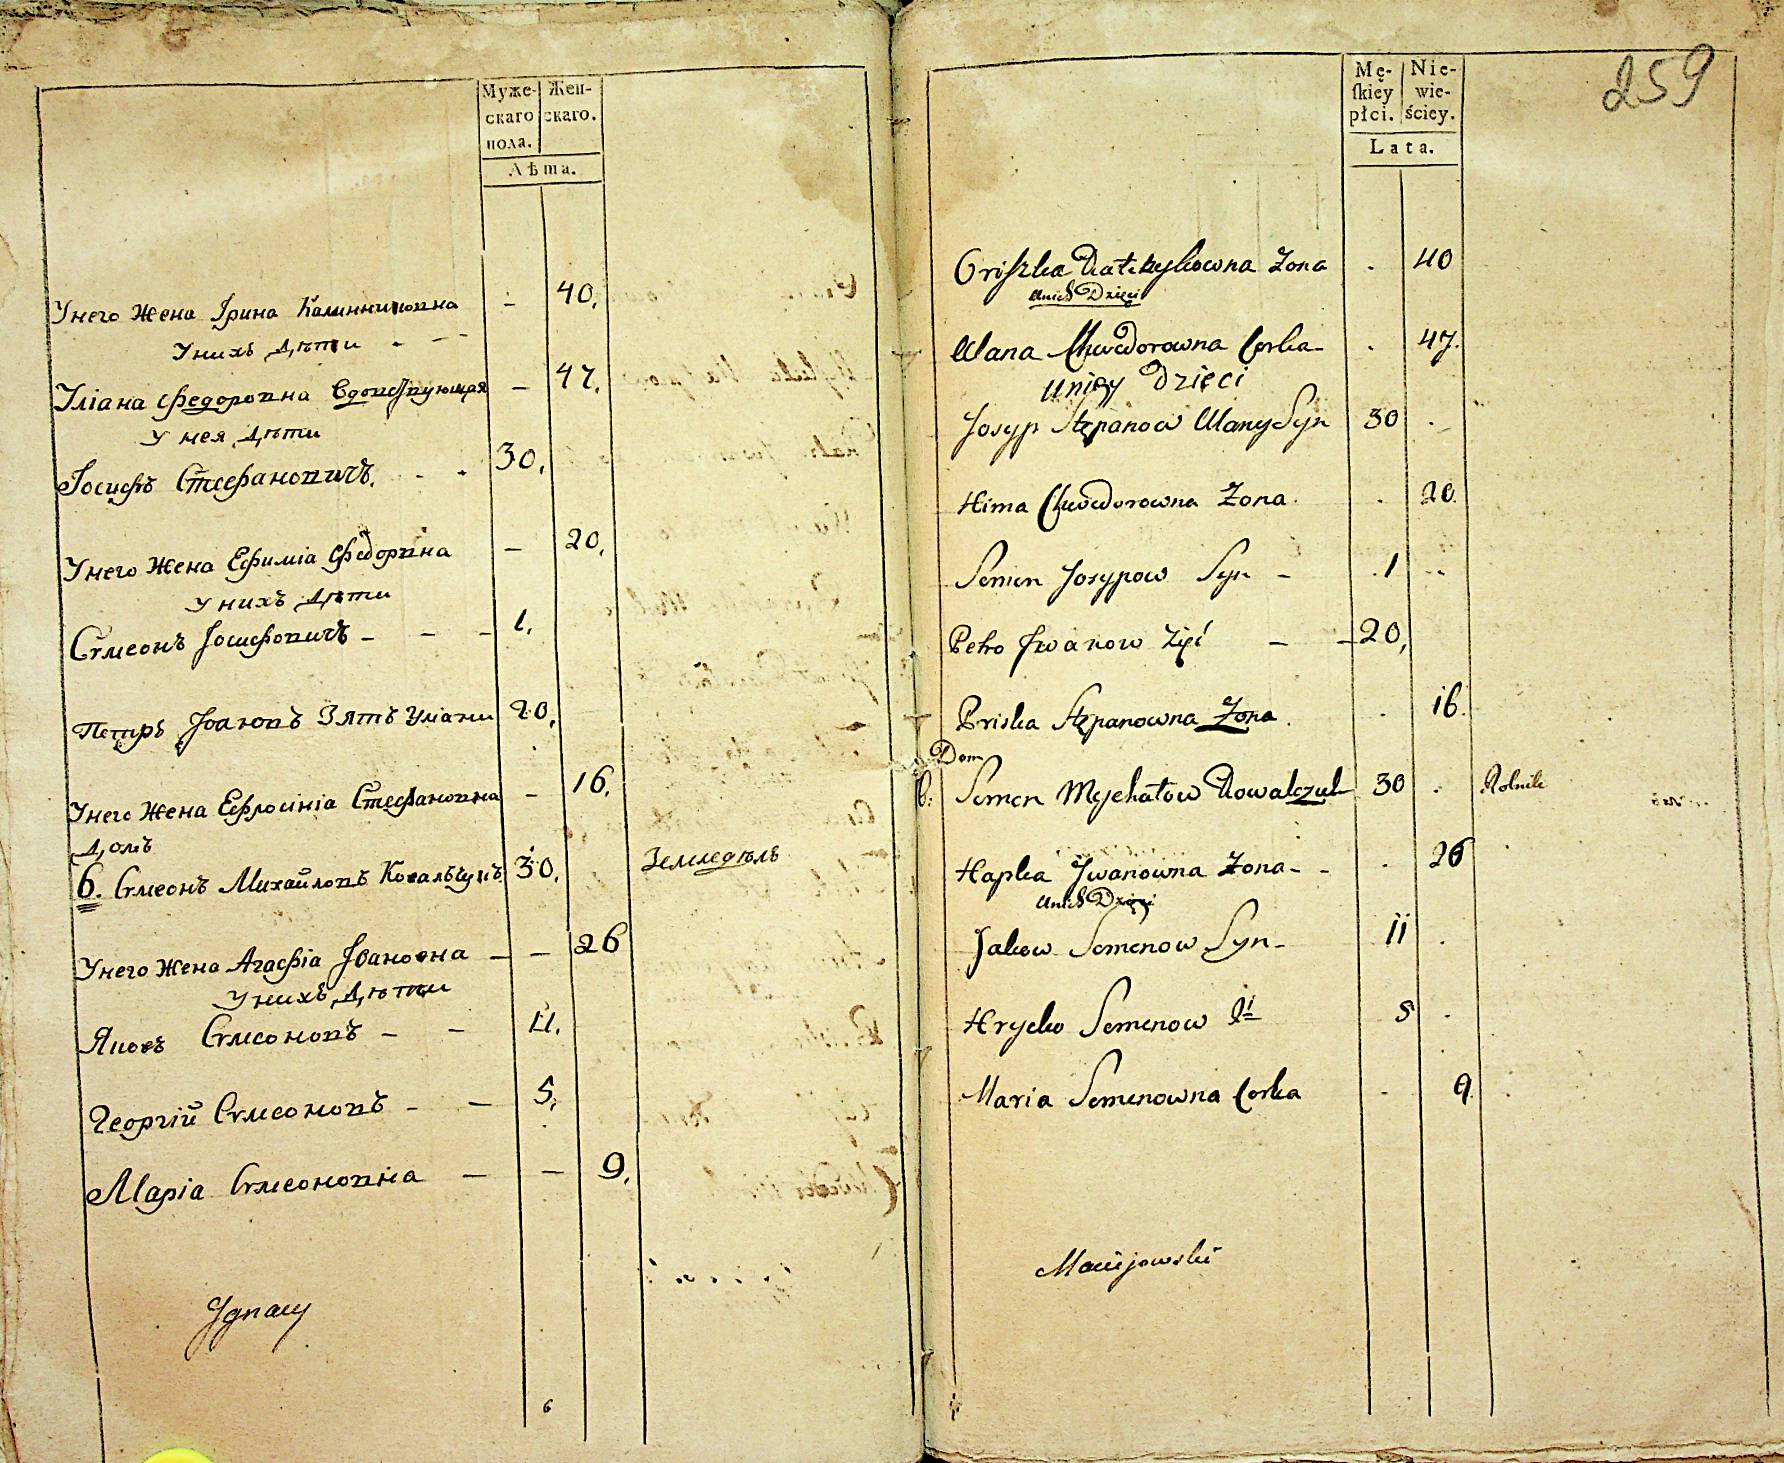 Муже- Жен-
скаго скаго.
пола.
Лѣта.
У него Жена Ірина Калинниковна - 40,
У нихъ Дѣти - - -
Уліана Федоровна Вдовствующая - 47,
У нея Дѣти
Іосифъ Стефановичъ. - - 30,
У него Жена Ефимія Федоровна - 20,
У нихъ Дѣти
Сѵмеонъ Іосифовичъ - - - 1,
Петръ Івановъ Зять Уліани 20,
У него Жена Ефросинія Стефановна - 16,
Домъ
6. Сѵмеонъ Михайловъ Ковальчукъ 30, Земледѣль
У него Жена Агафіа Іванова - - 26
У нихъ Дѣти
Яковъ Сѵмеоновъ - - 11,
Георгій Сѵмеоновъ - - 5,
Маріа Сѵмеоновна - - 9,
Ignacy
6
259
Mę- Nie-
skiey wie-
płci. ściey.
Lata.
Oryszka Żona . 40
unich Dzięci
Ulana Chwedorowna Corka - . 47.
uniey Dzięci
Josyp Stepanow Ulany Syn 30 .
Hima Chwedorowna Żona . . 20.
Semen Josypow Syn - . 1 -
Petro Jwanow Zięć - - 20,
Priska Stepanowna Żona . . 16.
Dom
6. Semen Mychałow Kowalczuk 30 . Rolnik
Hapka Jwanowna Żona - - . 26
unich Dzięci
Jakow Semenow Syn - 11 .
Hrycko Semenow 5 .
Maria Semenowna Corka . 9.
Maciejowski